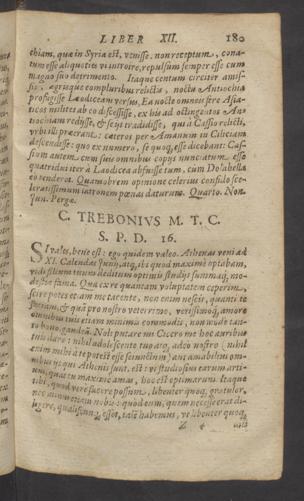 LIBER XII. 180
chiam, quæ in Syria est, venisse. non receptum, cona-
tum esse aliquoties vi introire, repulsum semper esse cum
magno suo detrimento. Itaque centum circiter amis-
sis, ægrisque compluribus relictis, noctu Antiochia
profugisse Laodiceam versus. Ea nocte omneis fere Asia-
ticos milites ab eo discessisse. ex his ad octingentos An-
tiochiam redisse, & se iis tradidisse, qui à Cassio relicti,
urbi illi præerant: cæteros per Amanum in Ciliciam
descendisse: quo ex numero, se quoque, esse dicebant: Cas-
sium autem cum suis omnibus copiis nunciatum esse
quatridui iter à Laodicea abfuisse tum, cum Dolabella
eo tenderet. Quamobrem opinione celerius confido sce-
leratissimum latronem pœnas daturum. Quarto. Non.
Jun. Pergæ.
C. TREBONIVS M. T. C.
S. P. D. 16.
SI vales, bene est: ego quidem valeo. Athenas veni ad
XI. Calendas Junij, atque, ibi quod maxime optabam,
vidi filium tuum deditum optimis studijs summaque, mo-
destiæ fama. Qua ex re quantam voluptatem ceperim,
scire potes et am me tacente, non enim nescis, quanti te
faciam, & quàm pro nostro veterrimo, verissimoque, amore
omnibus tuis etiam minimis commodis, non modo tan-
to bono, gaudeam. Noli putare mi Cicero me hoc auribus
tuis dare: nihil adolescente tuo atque, adeo nostro (nihil
enim mihi à te potest esse seiunctum) aut amabilius om-
nibus ijs qui Athenis sunt. est: vi studiosius earum arti-
um, quas tu maxime amas, hoc est optimarum. Itaque
tibi, quod vere facere possum, libenter quoque, gratulor,
nec minus etiam nobis: quod eum, quem necesse erat di-
ligere, qualiscunque esset, talem habemus, ut libenter quoque,
Z 4